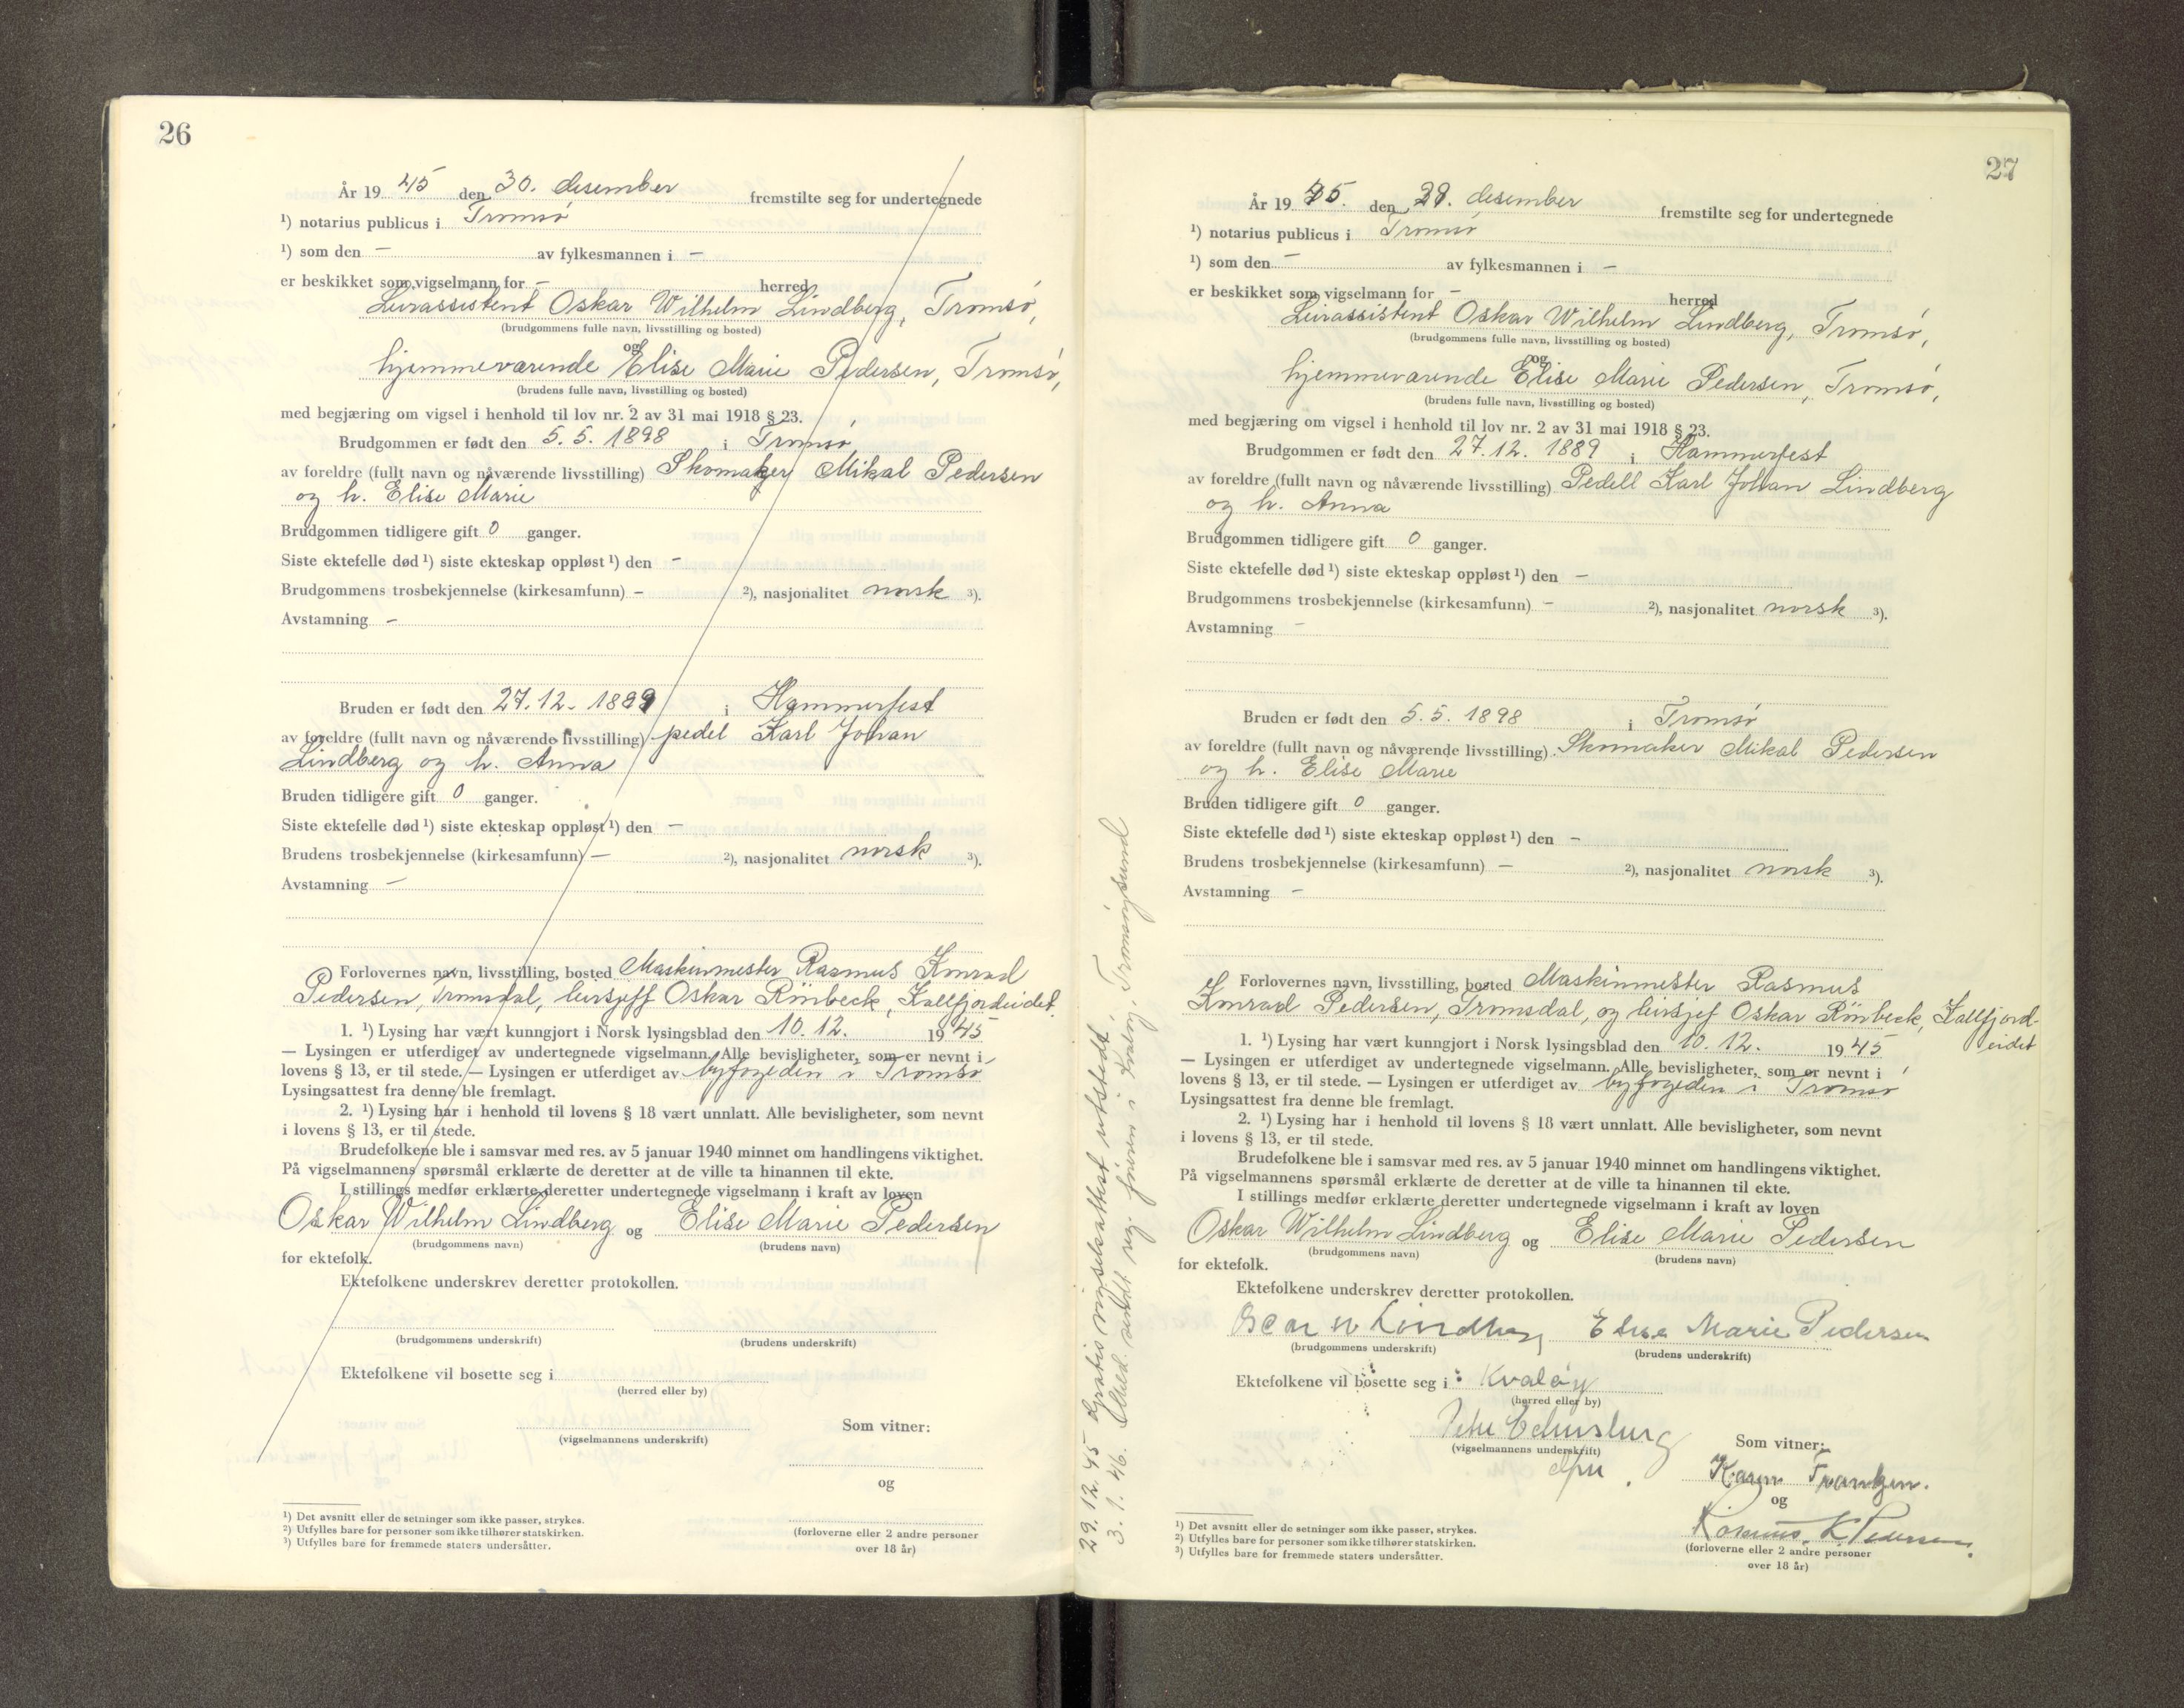 26
År 19 45 den 30. desember fremstilte seg for undertegnede
¹) notarius publicus i Tromsø
¹) som den – av fylkesmannen i –
er beskikket som vigselmann for – herred
Leirassistent Oskar Wilhelm Lindberg, Tromsø,
(brudgommens fulle navn, livsstilling og bosted)
og
hjemmeværende Elise Marie Pedersen, Tromsø,
(brudens fulle navn, livsstilling og bosted)
med begjæring om vigsel i henhold til lov nr. 2 av 31 mai 1918 § 23.
Brudgommen er født den 5. 5. 1898 i Tromsø
av foreldre (fullt navn og nåværende livsstilling) Skomaker Mikal Pedersen
og h. Elise Marie
Brudgommen tidligere gift 0 ganger.
Siste ektefelle død ¹) siste ekteskap oppløst ¹) den –
Brudgommens trosbekjennelse (kirkesamfunn) – ²), nasjonalitet norsk ³).
Avstamning –
Bruden er født den 27. 12. 1889 i Hammerfest
av foreldre (fullt navn og nåværende livsstilling) pedel Karl Johan
Lindberg og h. Anna
Bruden tidligere gift 0 ganger.
Siste ektefelle død ¹) siste ekteskap oppløst ¹) den –
Brudens trosbekjennelse (kirkesamfunn) – ²), nasjonalitet norsk ³).
Avstamning –
Forlovernes navn, livsstilling, bosted Maskinmester Rasmus Konrad
Pedersen, Tromsdal, leirsjeff Oskar Rönbeck, Kallfjordeidet.
1. ¹) Lysing har vært kunngjort i Norsk lysingsblad den 10. 12. 19 45
— Lysingen er utferdiget av undertegnede vigselmann. Alle bevisligheter, som er nevnt i
lovens § 13, er til stede. — Lysingen er utferdiget av byfogeden i Tromsø
Lysingsattest fra denne ble fremlagt.
2. ¹) Lysing har i henhold til lovens § 18 vært unnlatt. Alle bevisligheter, som nevnt
i lovens § 13, er til stede.
Brudefolkene ble i samsvar med res. av 5 januar 1940 minnet om handlingens viktighet.
På vigselmannens spørsmål erklærte de deretter at de ville ta hinannen til ekte.
I stillings medfør erklærte deretter undertegnede vigselmann i kraft av loven
Oskar Wilhelm Lindberg og Elise Marie Pedersen
(brudgommens navn) (brudens navn)
for ektefolk.
Ektefolkene underskrev deretter protokollen.
(brudgommens underskrift) (brudens underskrift)
Ektefolkene vil bosette seg i
(herred eller by)
Som vitner:
(vigselmannens underskrift)
og
(forloverne eller 2 andre personer
over 18 år)
¹) Det avsnitt eller de setninger som ikke passer, strykes.
²) Utfylles bare for personer som ikke tilhører statskirken.
³) Utfylles bare for fremmede staters undersåtter.
27
År 19 45. den 29. desember fremstilte seg for undertegnede
¹) notarius publicus i Tromsø
¹) som den – av fylkesmannen i –
er beskikket som vigselmann for – herred
Leirassistent Oskar Wilhelm Lindberg, Tromsø,
(brudgommens fulle navn, livsstilling og bosted)
og
hjemmeværende Elise Marie Pedersen, Tromsø,
(brudens fulle navn, livsstilling og bosted)
med begjæring om vigsel i henhold til lov nr. 2 av 31 mai 1918 § 23.
Brudgommen er født den 27. 12. 1889 i Hammerfest
av foreldre (fullt navn og nåværende livsstilling) Pedell Karl Johan Lindberg
og h. Anna
Brudgommen tidligere gift 0 ganger.
Siste ektefelle død ¹) siste ekteskap oppløst ¹) den –
Brudgommens trosbekjennelse (kirkesamfunn) – ²), nasjonalitet norsk ³).
Avstamning –
Bruden er født den 5. 5. 1898 i Tromsø
av foreldre (fullt navn og nåværende livsstilling) Skomaker Mikal Pedersen
og h. Elise Marie
Bruden tidligere gift 0 ganger.
Siste ektefelle død ¹) siste ekteskap oppløst ¹) den –
Brudens trosbekjennelse (kirkesamfunn) – ²), nasjonalitet norsk ³).
Avstamning –
Forlovernes navn, livsstilling, bosted Maskinmester Rasmus
Konrad Pedersen, Tromsdal, og leirsjef Oskar Rönbeck, Kallfjord-
eidet
1. ¹) Lysing har vært kunngjort i Norsk lysingsblad den 10. 12. 19 45
— Lysingen er utferdiget av undertegnede vigselmann. Alle bevisligheter, som er nevnt i
lovens § 13, er til stede. — Lysingen er utferdiget av byfogeden i Tromsø
Lysingsattest fra denne ble fremlagt.
2. ¹) Lysing har i henhold til lovens § 18 vært unnlatt. Alle bevisligheter, som nevnt
i lovens § 13, er til stede.
Brudefolkene ble i samsvar med res. av 5 januar 1940 minnet om handlingens viktighet.
På vigselmannens spørsmål erklærte de deretter at de ville ta hinannen til ekte.
I stillings medfør erklærte deretter undertegnede vigselmann i kraft av loven
Oskar Wilhelm Lindberg og Elise Marie Pedersen
(brudgommens navn) (brudens navn)
for ektefolk.
Ektefolkene underskrev deretter protokollen.
Oscar W Lindberg Elise Marie Pedersen
(brudgommens underskrift) (brudens underskrift)
Ektefolkene vil bosette seg i : Kvaløy
(herred eller by)
(vigselmannens underskrift)
Som vitner:
Karen Frantzen.
og
Rasmus. K. Pedersen.
(forloverne eller 2 andre personer
over 18 år)
¹) Det avsnitt eller de setninger som ikke passer, strykes.
²) Utfylles bare for personer som ikke tilhører statskirken.
³) Utfylles bare for fremmede staters undersåtter.
29. 12. 45 Gratis vigselsattest utstedt.
3. 1. 46. Meld. sendt reg. føreren i Kvaløy, Tromsøysund